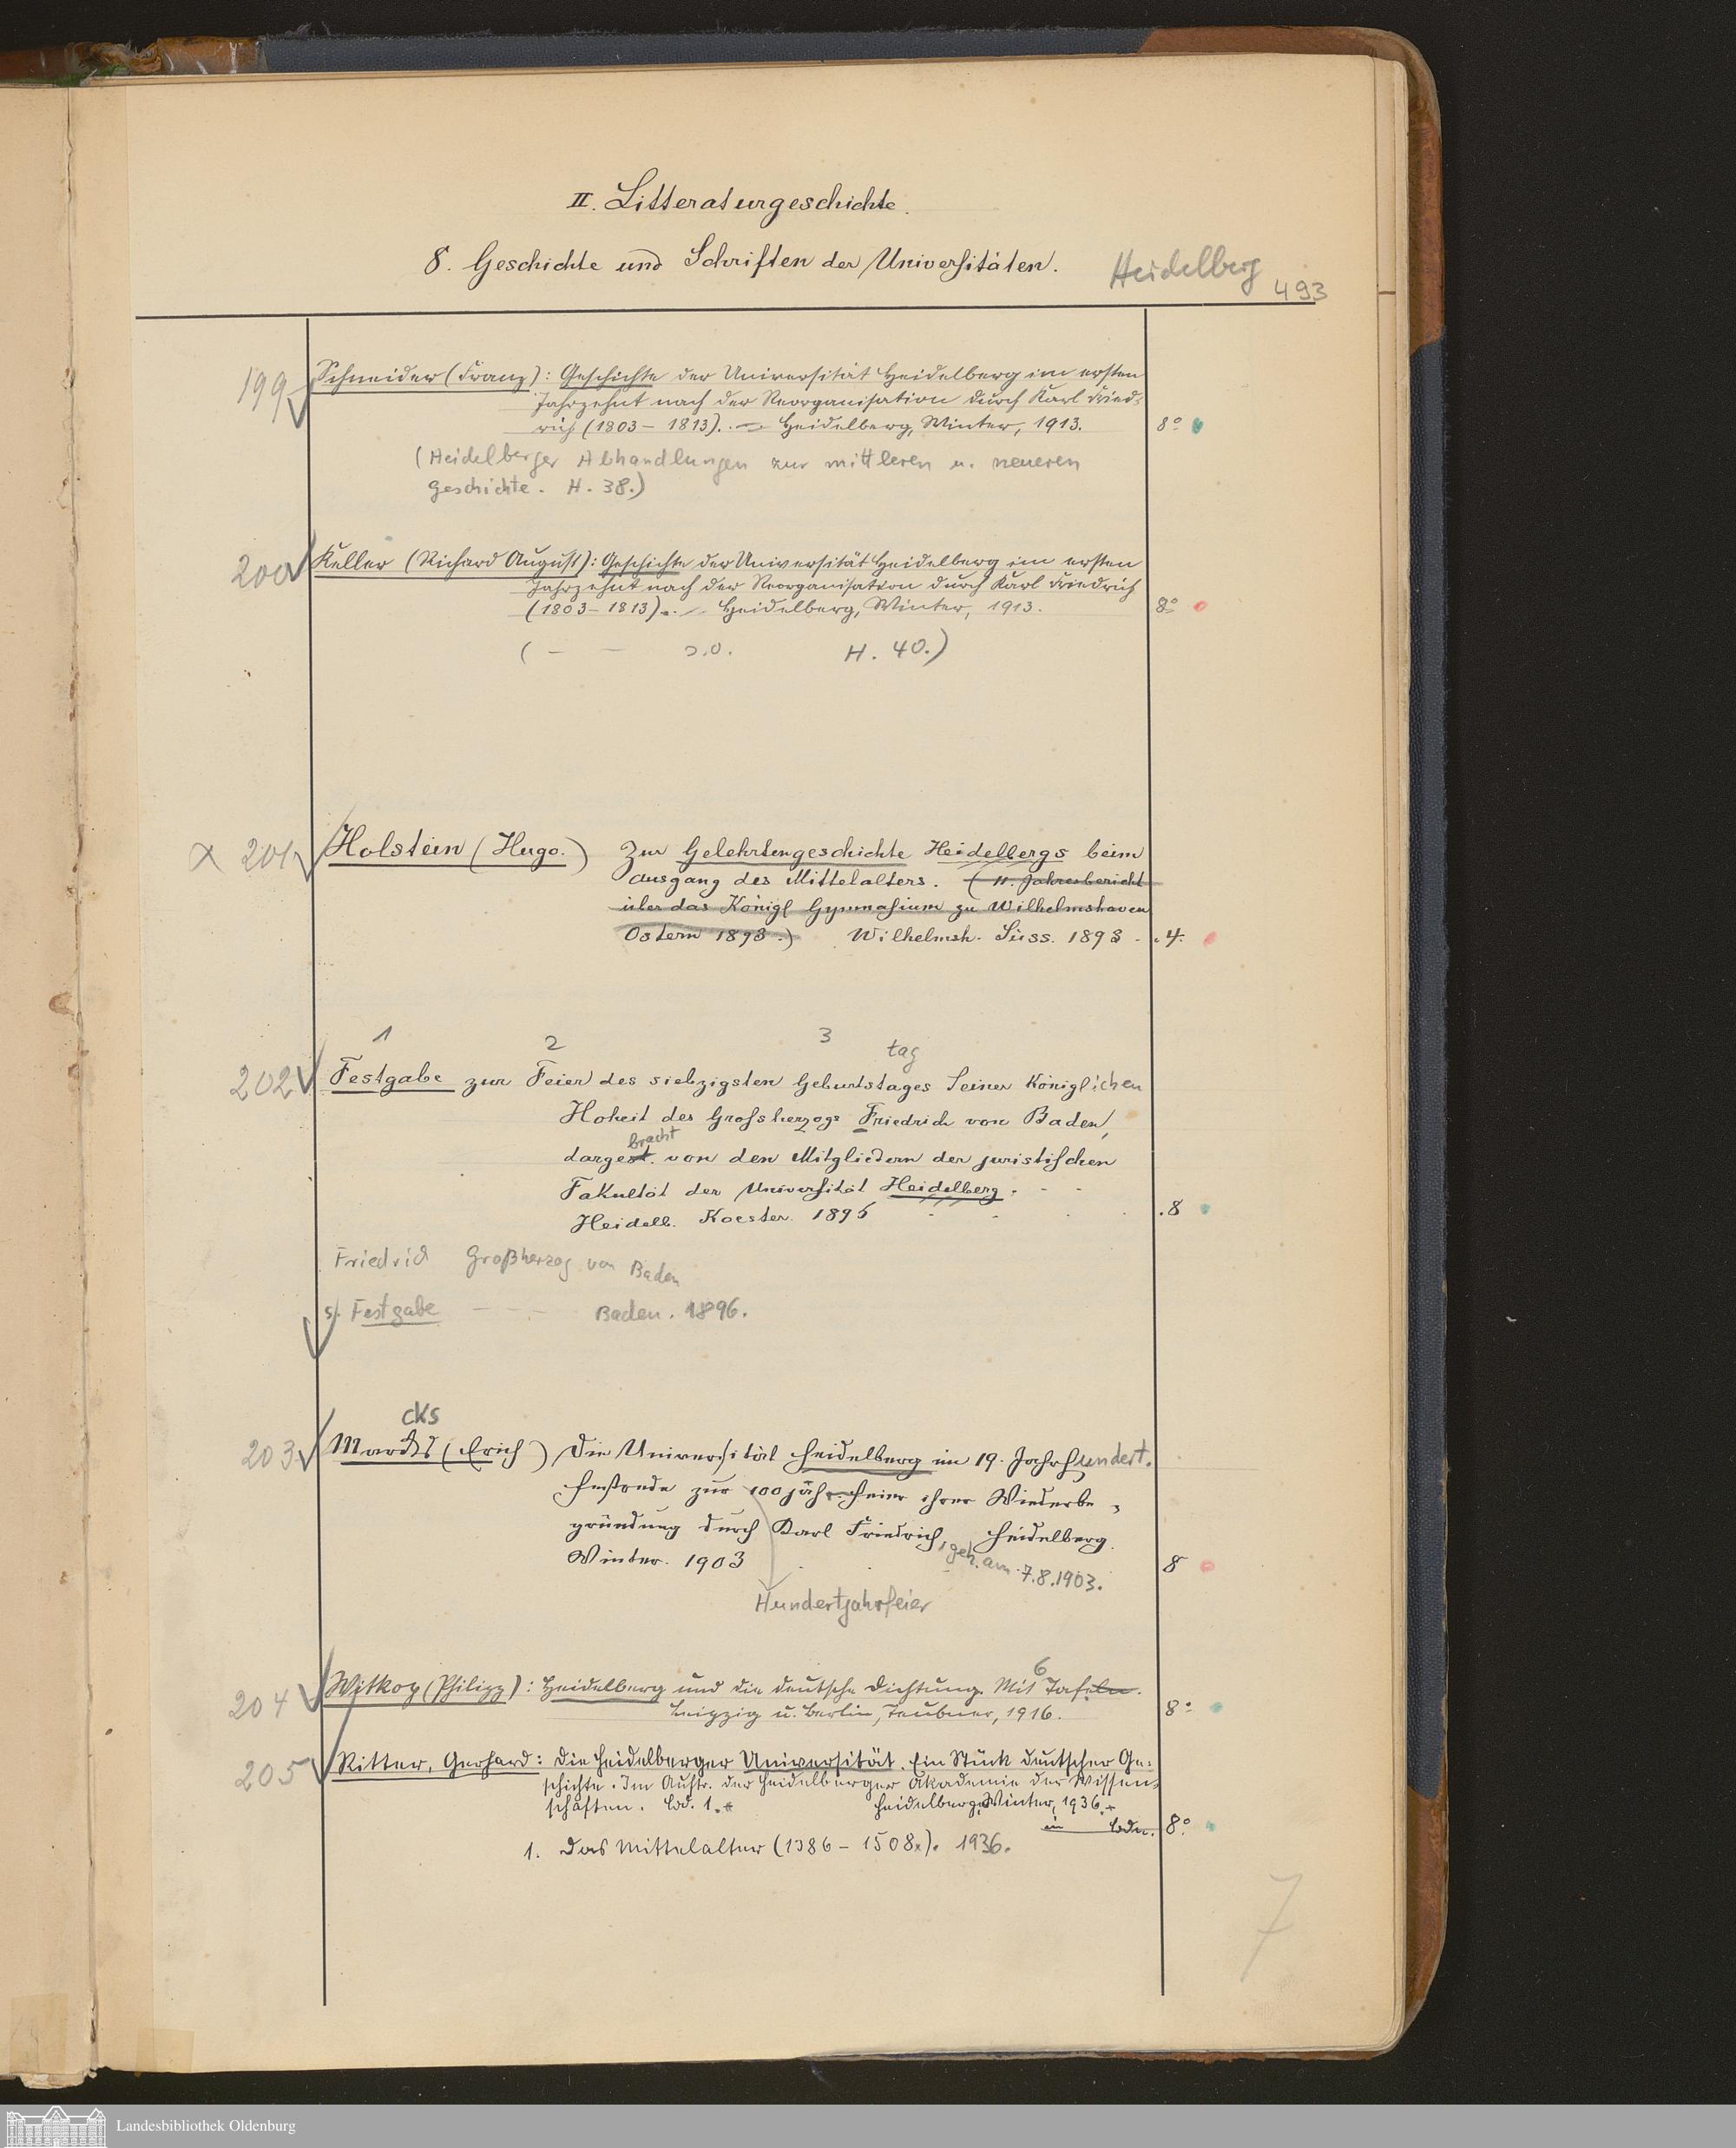 II. Litteraturgeschichte.
8. Geschichte und Schriften der Universitäten.
Heidelberg
493
199
Schneider (Franz): Geschichte der Universität Heidelberg im ersten
Jahrzehnt nach der Reorganisation durch Karl Fried-
rich (1803–1813). – Heidelberg, Winter, 1913.
8°
(Heidelberger Abhandlungen zur mittleren u. neueren
Geschichte. H. 38.)
200
Keller (Richard August): Geschichte der Universität Heidelberg im ersten
Jahrzehnt nach der Reorganisation durch Karl Friedrich
(1803–1813). – Heidelberg, Winter, 1913.
8°
( – – H. 40.)
201
Holstein (Hugo.) Zur Gelehrtengeschichte Heidelbergs beim
Ausgang des Mittelalters. (11. Jahresbericht
über das Königl Gymnasium zu Wilhelmshaven
Ostern 1893.) Wilhelmsh. Süss. 1893
4.
1 2 3
tag
202
Festgabe zur Feier des siebzigsten Geburtstages Seiner Königlichen
Hoheit des Grossherzogs Friedrich von Baden,
bracht
dargest. von den Mitgliedern der juristischen
Fakultät der Universität Heidelberg.
Heidelb. Koester. 1896
8
Friedrich Großherzog von Baden
s. Festgabe – – – Baden. 1896.
cks
203
Marcks (Erich) Die Universität Heidelberg im 19. Jahrhundert.
Festrede zur 100jähr. Feier ihrer Wiederbe-
gründung durch Karl Friedrich, Heidelberg.
Winter. 1903
, geh. am 7.8.1903.
8
Hundertjahrfeier
6
204
Witkop (Philipp): Heidelberg und die deutsche Dichtung. Mit Tafeln.
Leipzig u. Berlin, Teubner, 1916.
8°
205
Ritter, Gerhard: Die Heidelberger Universität. Ein Stück deutscher Ge-
schichte. Im Auftr. der Heidelberger Akademie der Wissen-
schaften. Bd. 1. Heidelberg: Winter, 1936.
in Bdn.
8°.
1. Das Mittelalter (1386–1508.). 1936.
7
Landesbibliothek Oldenburg